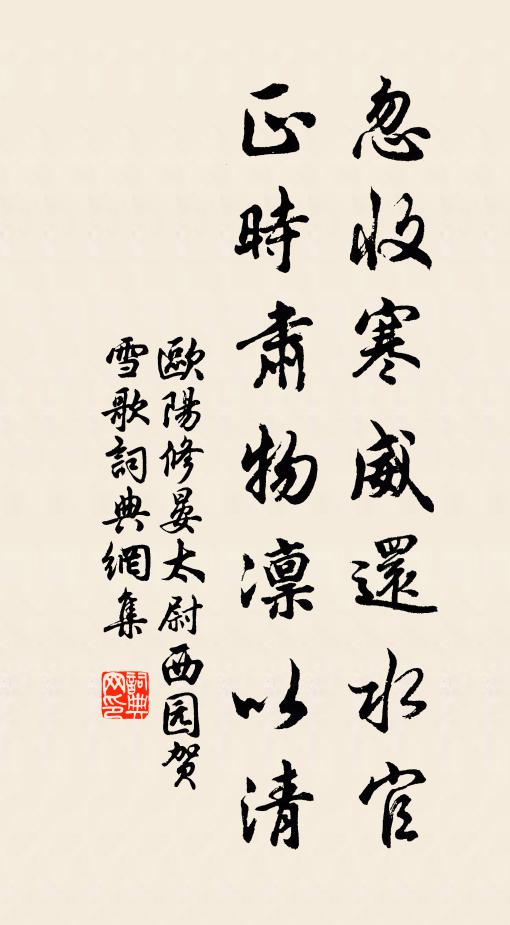 忽收寒威還水官
正時肅物凛以清
歐陽修晏太尉西园贺
雪歌詞典網集
詞典网印